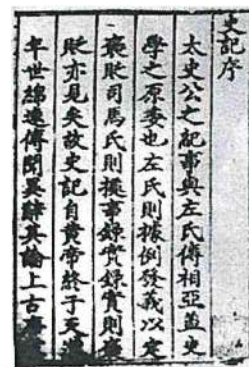 史記序
太史公之記事與左氏傳相亞蓋史
學之原委也左氏則據例發義以定
褒貶司馬氏則據事錄實錄實則褒
貶亦見矣故史記自黃帝終于天漢
年世綿遠傳聞異辭其論上古